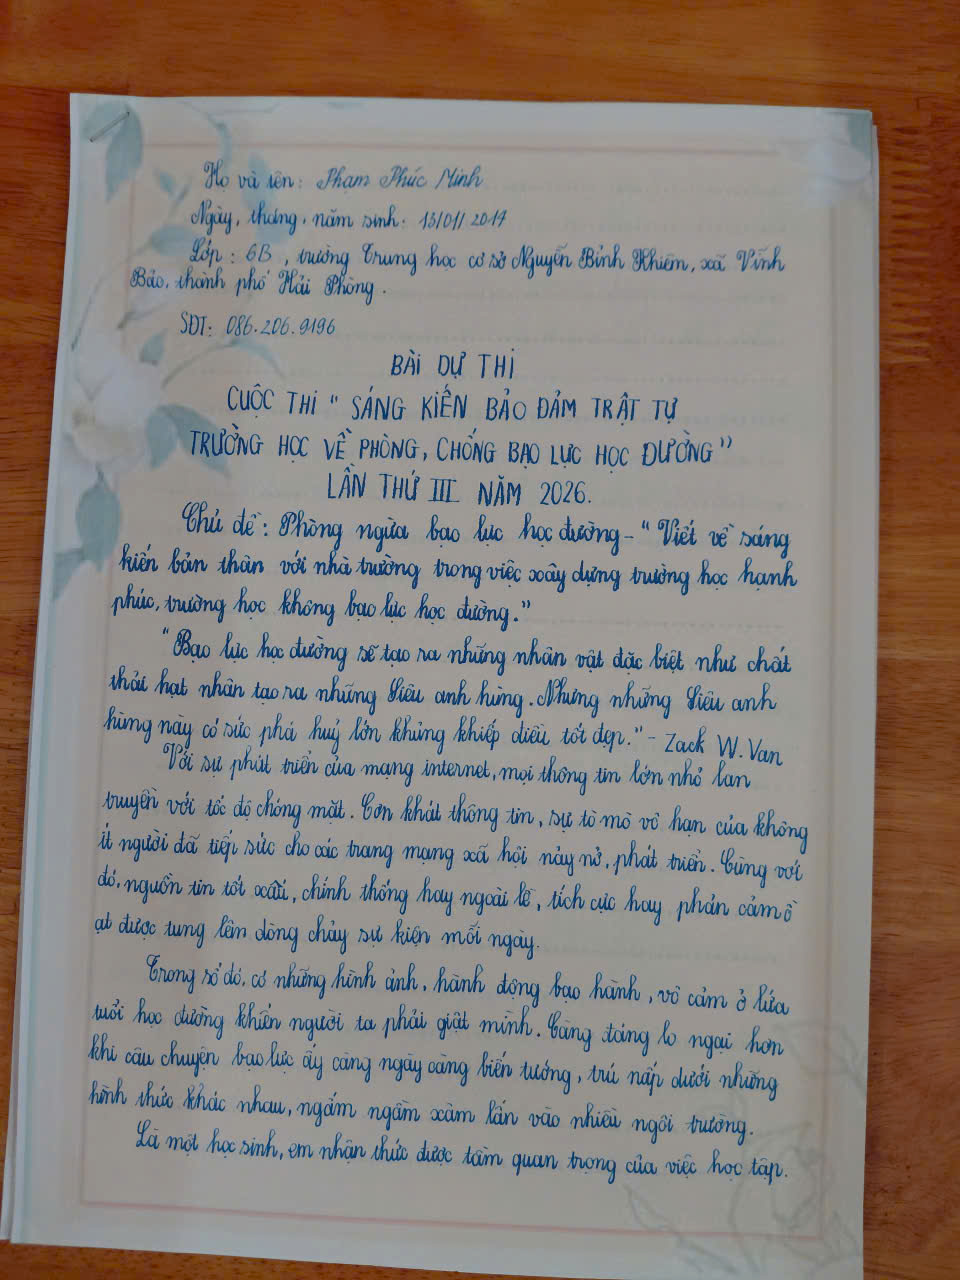 Họ và tên: Phạm Phúc Minh
Ngày, tháng, năm sinh: 13/01/2014
Lớp: 6B, trường Trung học cơ sở Nguyễn Bỉnh Khiêm, xã Vĩnh
Bảo, thành phố Hải Phòng.
SĐT: 086.206.9196
BÀI DỰ THI
CUỘC THI "SÁNG KIẾN BẢO ĐẢM TRẬT TỰ
TRƯỜNG HỌC VỀ PHÒNG, CHỐNG BẠO LỰC HỌC ĐƯỜNG"
LẦN THỨ III NĂM 2026.
Chủ đề: Phòng ngừa bạo lực học đường - "Viết về sáng
kiến bản thân với nhà trường trong việc xây dựng trường học hạnh
phúc, trường học không bạo lực học đường."
"Bạo lực học đường sẽ tạo ra những nhân vật đặc biệt như chất
thải hạt nhân tạo ra những siêu anh hùng. Nhưng những siêu anh
hùng này có sức phá huỷ lớn khủng khiếp điều tốt đẹp." - Zack W. Van
Với sự phát triển của mạng internet, mọi thông tin lớn nhỏ lan
truyền với tốc độ chóng mặt. Cơn khát thông tin, sự tò mò vô hạn của không
ít người đã tiếp sức cho các trang mạng xã hội nảy nở, phát triển. Cùng với
đó, nguồn tin tốt xấu, chính thống hay ngoài lề, tích cực hay phản cảm ồ
ạt được tung lên dòng chảy sự kiện mỗi ngày.
Trong số đó, có những hình ảnh, hành động bạo hành, vô cảm ở lứa
tuổi học đường khiến người ta phải giật mình. Càng đáng lo ngại hơn
khi câu chuyện bạo lực ấy càng ngày càng biến tướng, trú nấp dưới những
hình thức khác nhau, ngấm ngầm xâm lấn vào nhiều ngôi trường.
Là một học sinh, em nhận thức được tầm quan trọng của việc học tập.